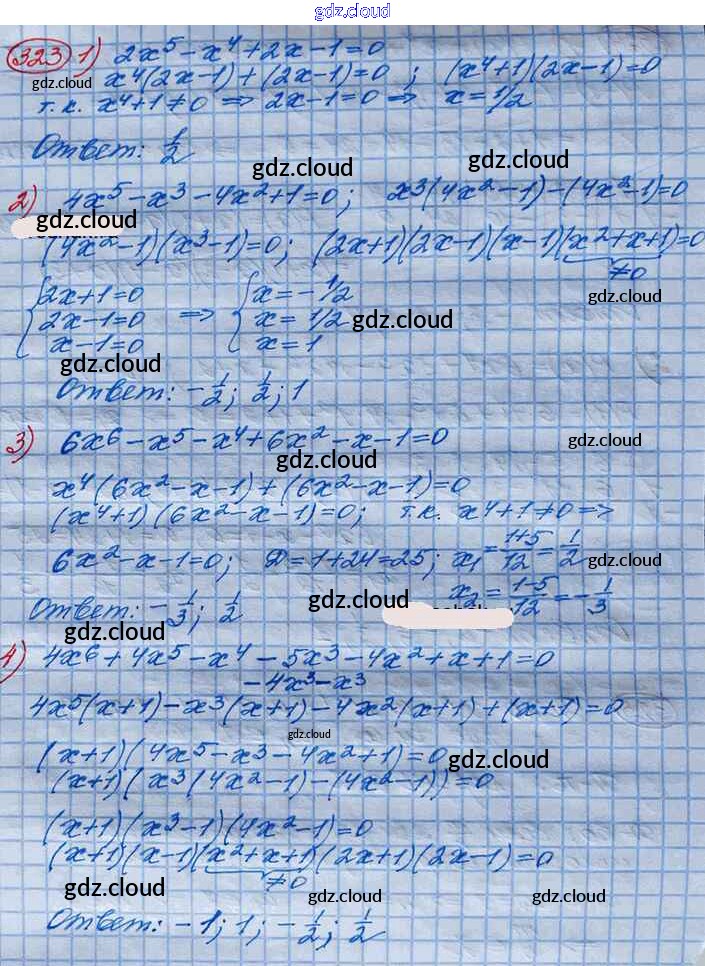 gdz.cloud
323 1) 2x⁵ - x⁴ + 2x - 1 = 0
gdz.cloud x⁴(2x-1) + (2x-1) = 0 ; (x⁴+1)(2x-1) = 0
т.к. x⁴+1 ≠ 0 => 2x-1=0 => x = 1/2
Ответ: 1/2
gdz.cloud gdz.cloud
2) 4x⁵ - x³ - 4x² + 1 = 0; x3(4x² - 1) - (4x² - 1) = 0
gdz.cloud
(4x² - 1)(x³ - 1) = 0; (2x+1)(2x-1)(x-1)(x²+x+1) = 0
≠0
{ 2x+1=0 { x = -1/2 gdz.cloud
2x-1=0 => x = 1/2 gdz.cloud
x-1=0 x = 1
gdz.cloud
Ответ: -1/2; 1/2; 1
3) 6x⁶ - x⁵ - x⁴ + 6x² - x - 1 = 0 gdz.cloud
gdz.cloud
x⁴(6x² - x - 1) + (6x² - x - 1) = 0
(x⁴+1)(6x² - x - 1) = 0; т.к. x⁴+1 ≠ 0 =>
6x² - x - 1 = 0; D = 1+24 = 25; x₁ = 1+5/12 = 1/2 gdz.cloud
x₂ = 1-5/12 = -1/3
Ответ: -1/3; 1/2 gdz.cloud
gdz.cloud
4) 4x⁶ + 4x⁵ - x⁴ - 5x³ - 4x² + x + 1 = 0
-4x³ - x³
4x⁵(x+1) - x³(x+1) - 4x²(x+1) + (x+1) = 0
gdz.cloud
(x+1)(4x⁵ - x³ - 4x² + 1) = 0 gdz.cloud
(x+1)(x³(4x² - 1) - (4x² - 1)) = 0
(x+1)(x³ - 1)(4x² - 1) = 0
(x+1)(x-1)(x²+x+1)(2x+1)(2x-1) = 0
≠0
gdz.cloud gdz.cloud gdz.cloud
Ответ: -1; 1; -1/2; 1/2